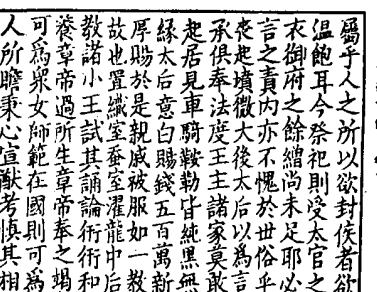 屬乎人之所以欲封侯者欲
温飽耳今祭祀則受太官之
衣御府之餘繒尚未足耶必
言之責内亦不愧於世俗乎
喪起墳微大後太后以為言
承俱奉法度王主諸家莫敢
起居見車騎鞍勒皆純黑無
緣太后意白賜錢五百萬新
厚賜於是親戚被服如一教
故也置織室蚕室濯龍中后
教諸小王試其誦論衎衎和
養章帝過所生章帝奉之竭
可為衆女師範在國則可為
人所瞻秉心宣猷考慎其相